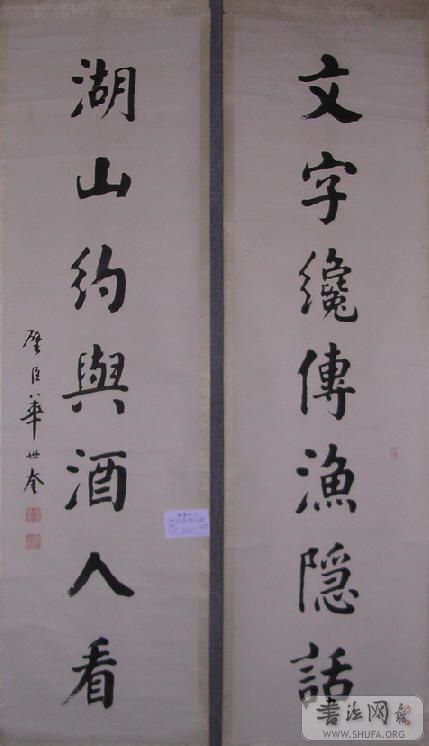 文字纔傳漁隱話
湖山約與酒人看
璧臣華世奎
書法网
WWW.SHUFA.ORG